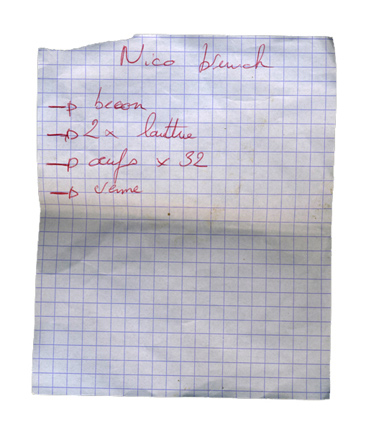 Nico brunch
→ bacon
→ 2 x laitue
→ œufs x 32
→ crème